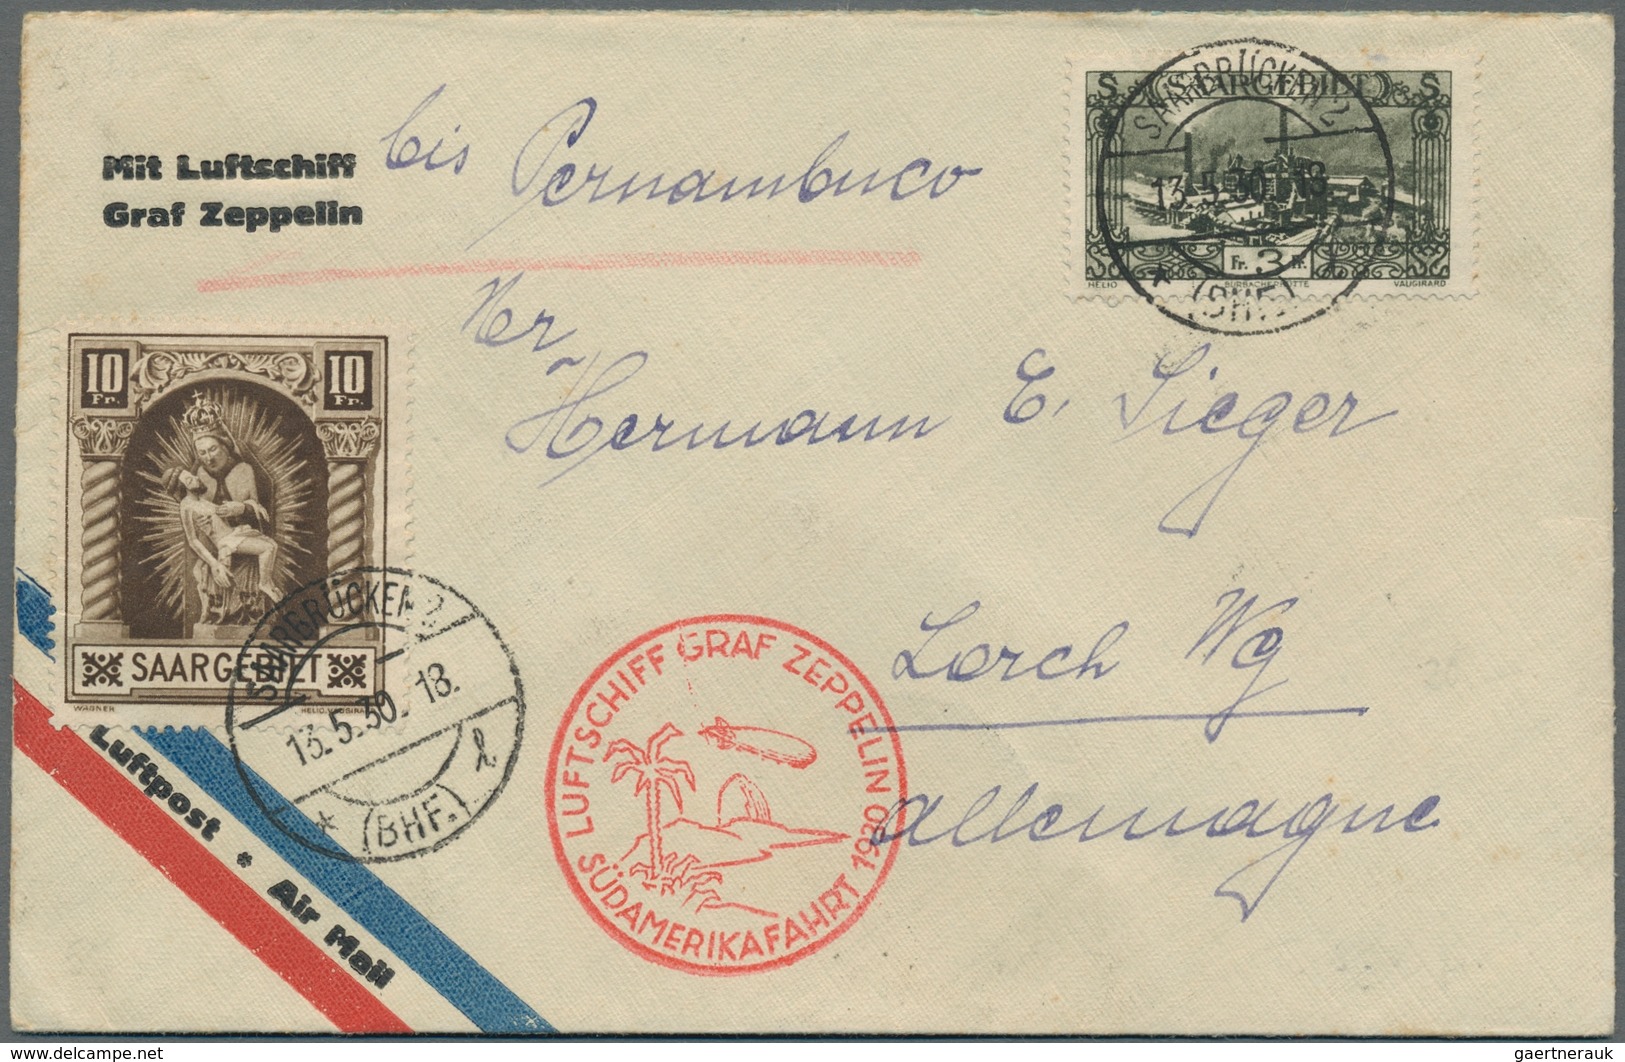 Mit Luftschiff
Graf Zeppelin
bis Pernambuco
SAARGEBIET
S S
Fr. 3 Fr.
HELIO BURBACHERHÜTTE VAUGIRARD
SAARBRÜCKEN 2
13.5.30. 18
* (BHF.)
Herrn
Hermann E. Sieger
Lorch Wg
Allemagne
10 Fr. 10 Fr.
SAARGEBIET
WAGNER HELIO. VAUGIRARD
SAARBRÜCKEN 2
13.5.30. 18.
* (BHF.) l
LUFTSCHIFF GRAF ZEPPELIN
SÜDAMERIKAFAHRT 1930
Luftpost * Air Mail
gaertnerauk @ delcampe.net